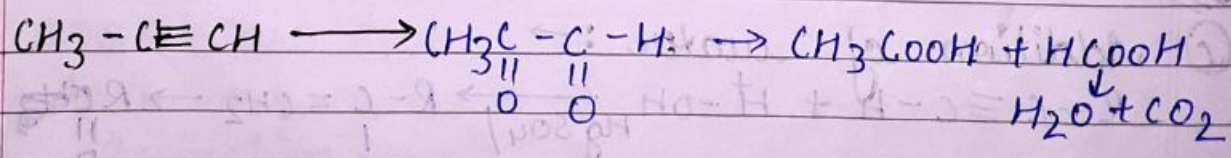 CH3 - C≡CH ⟶ CH3C - C - H: → CH3COOH + HCOOH
|| || ↓
O O H2O + CO2